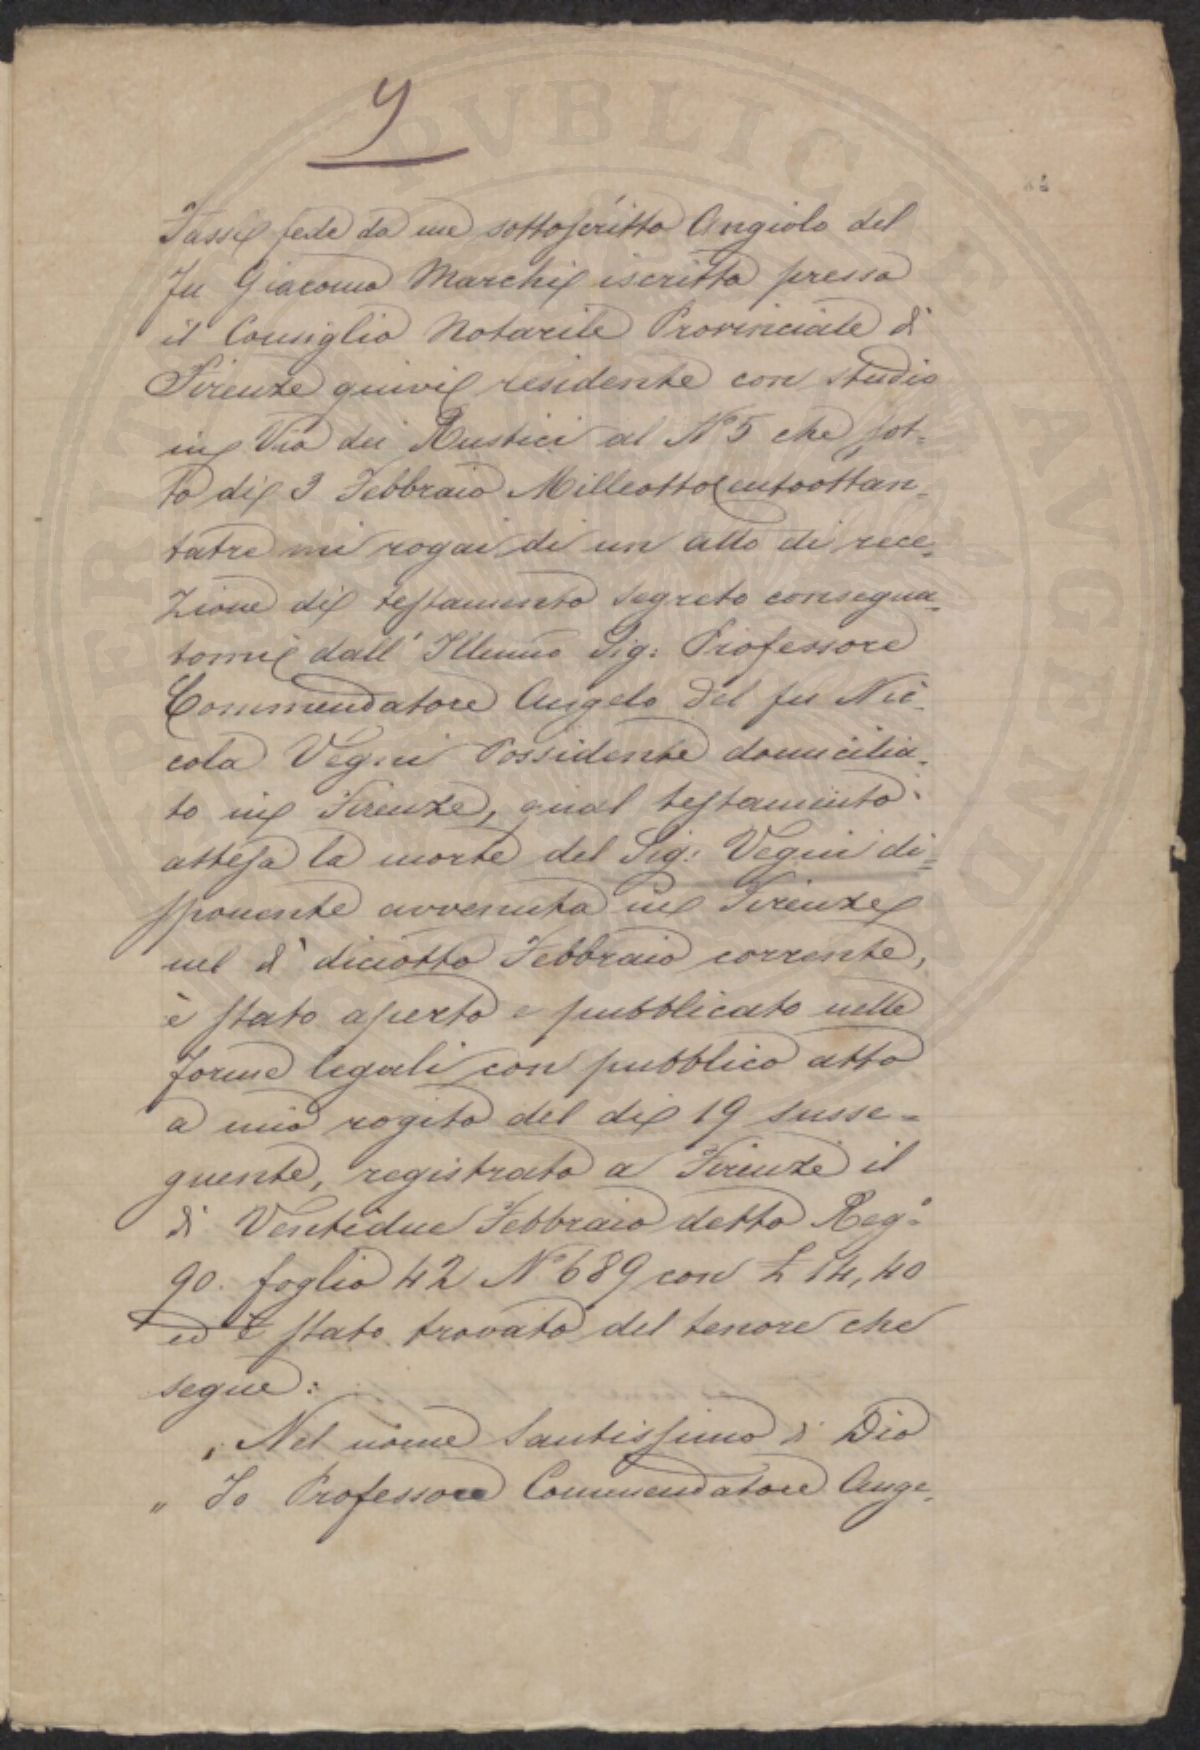 9
Fassi fede da me sottoscritto Angiolo del
fu Giacomo Marchi iscritto presso
il Consiglio Notarile Provinciale di
Firenze quivi residente con studio
in Via dei Rustici al N° 5 che sot=
to di 3 Febbraio Milleottocentoottan=
tatre mi rogai di un atto di rece=
zione di testamento segreto consegna=
tomi dall' Illmo Sig: Professore
Commendatore Angelo del fu Nic=
cola Vegni Possidente domicilia=
to in Firenze, qual testamento
attesa la morte del Sig: Vegni di=
sponente avvenuta in Firenze
nel dì diciotto Febbraio corrente,
è stato aperto e pubblicato nelle
forme legali con pubblico atto
a mio rogito del di 19 susse=
guente, registrato a Firenze il
dì Ventidue Febbraio detto Reg°
90. foglio 42 N° 689 con £ 14,40
ed è stato trovato del tenore che
segue:
„ Nel nome Santissimo di Dio
„ Io Professore Commendatore Ange=
PERITIA PVBLICAE AVGENDAE